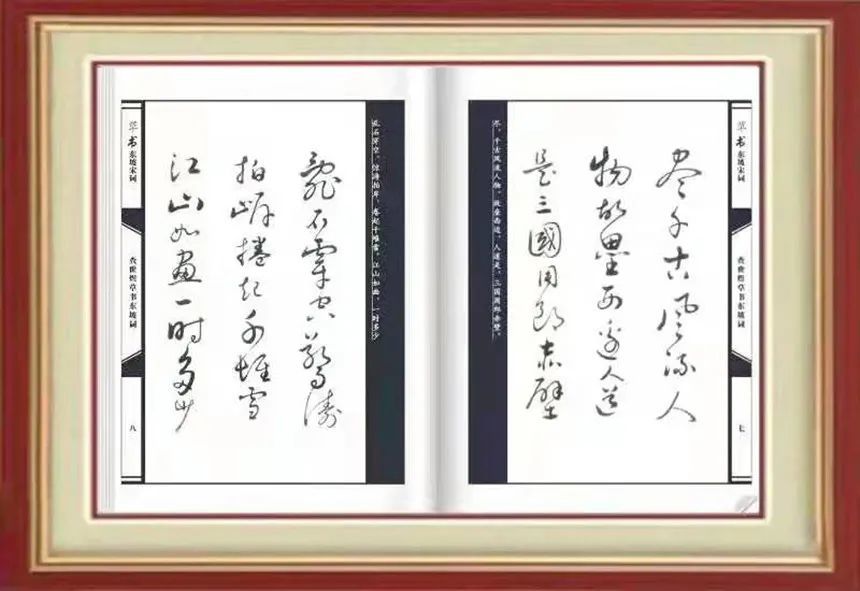 草书东坡宋词
草书东坡词
七
盡千古風流人
物故壘西邊人道
是三國周郎赤壁
尽，千古风流人物，故垒西边，人道是，三国周郎赤壁，
乱石穿空，惊涛拍岸，卷起千堆雪，江山如画，一时多少
亂石穿空驚濤
拍岸捲起千堆雪
江山如畫一时多少
草书东坡宋词
草书东坡词
八